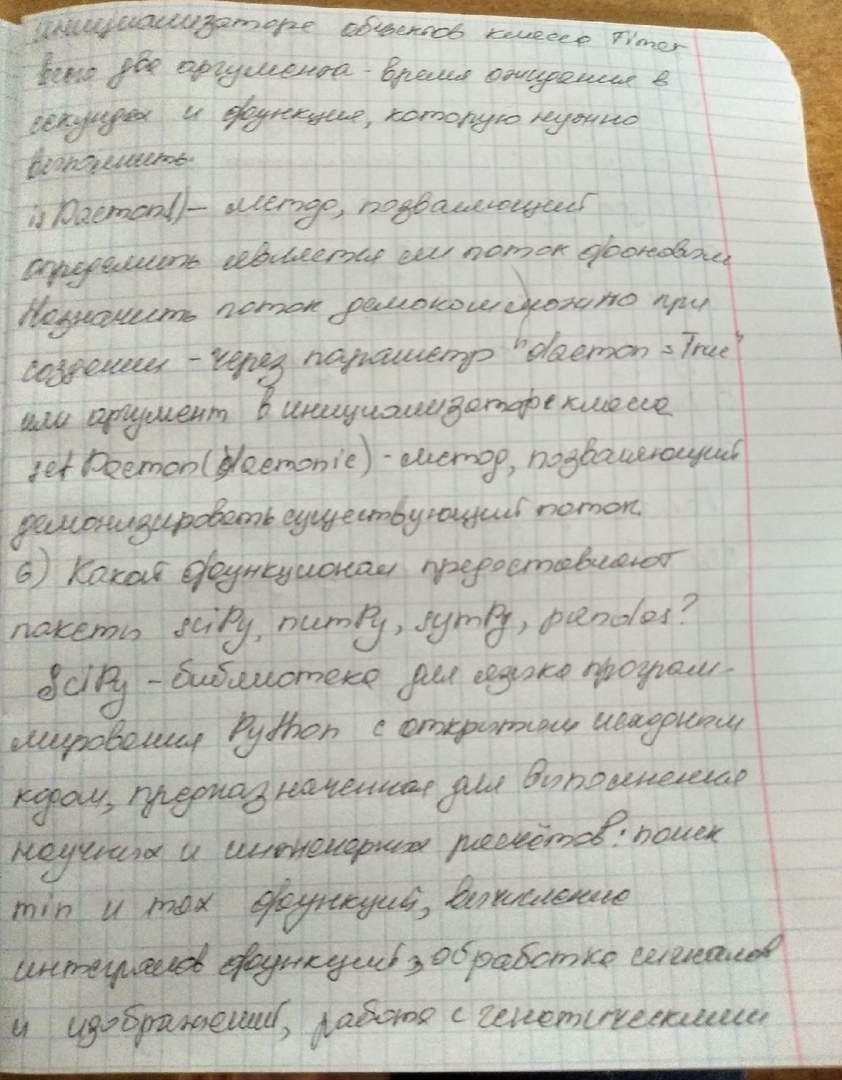 инициализаторе объектов класса Timer
всего два аргумента - время ожидания в
секундах и функция, которую нужно
выполнить.
isDaemon() - метод, позваляющий
определить является ли поток фоновым
Назначить поток демоном можно при
создании - через параметр "daemon = True"
или аргумент в инициализаторе класса
setDaemon(daemonic) - метод, позваляющий
демонизировать существующий поток.
6) Какой функционал предоставляют
пакеты sciPy, numPy, symPy, pandas?
SciPy - библиотека для языка програм-
мирования Python с открытым исходным
кодом, предназначенная для выполнения
научных и инженерных расчётов: поиск
min и max функций, вычисление
интегралов функций, обработка сигналов
и изображений, работа с генетическими